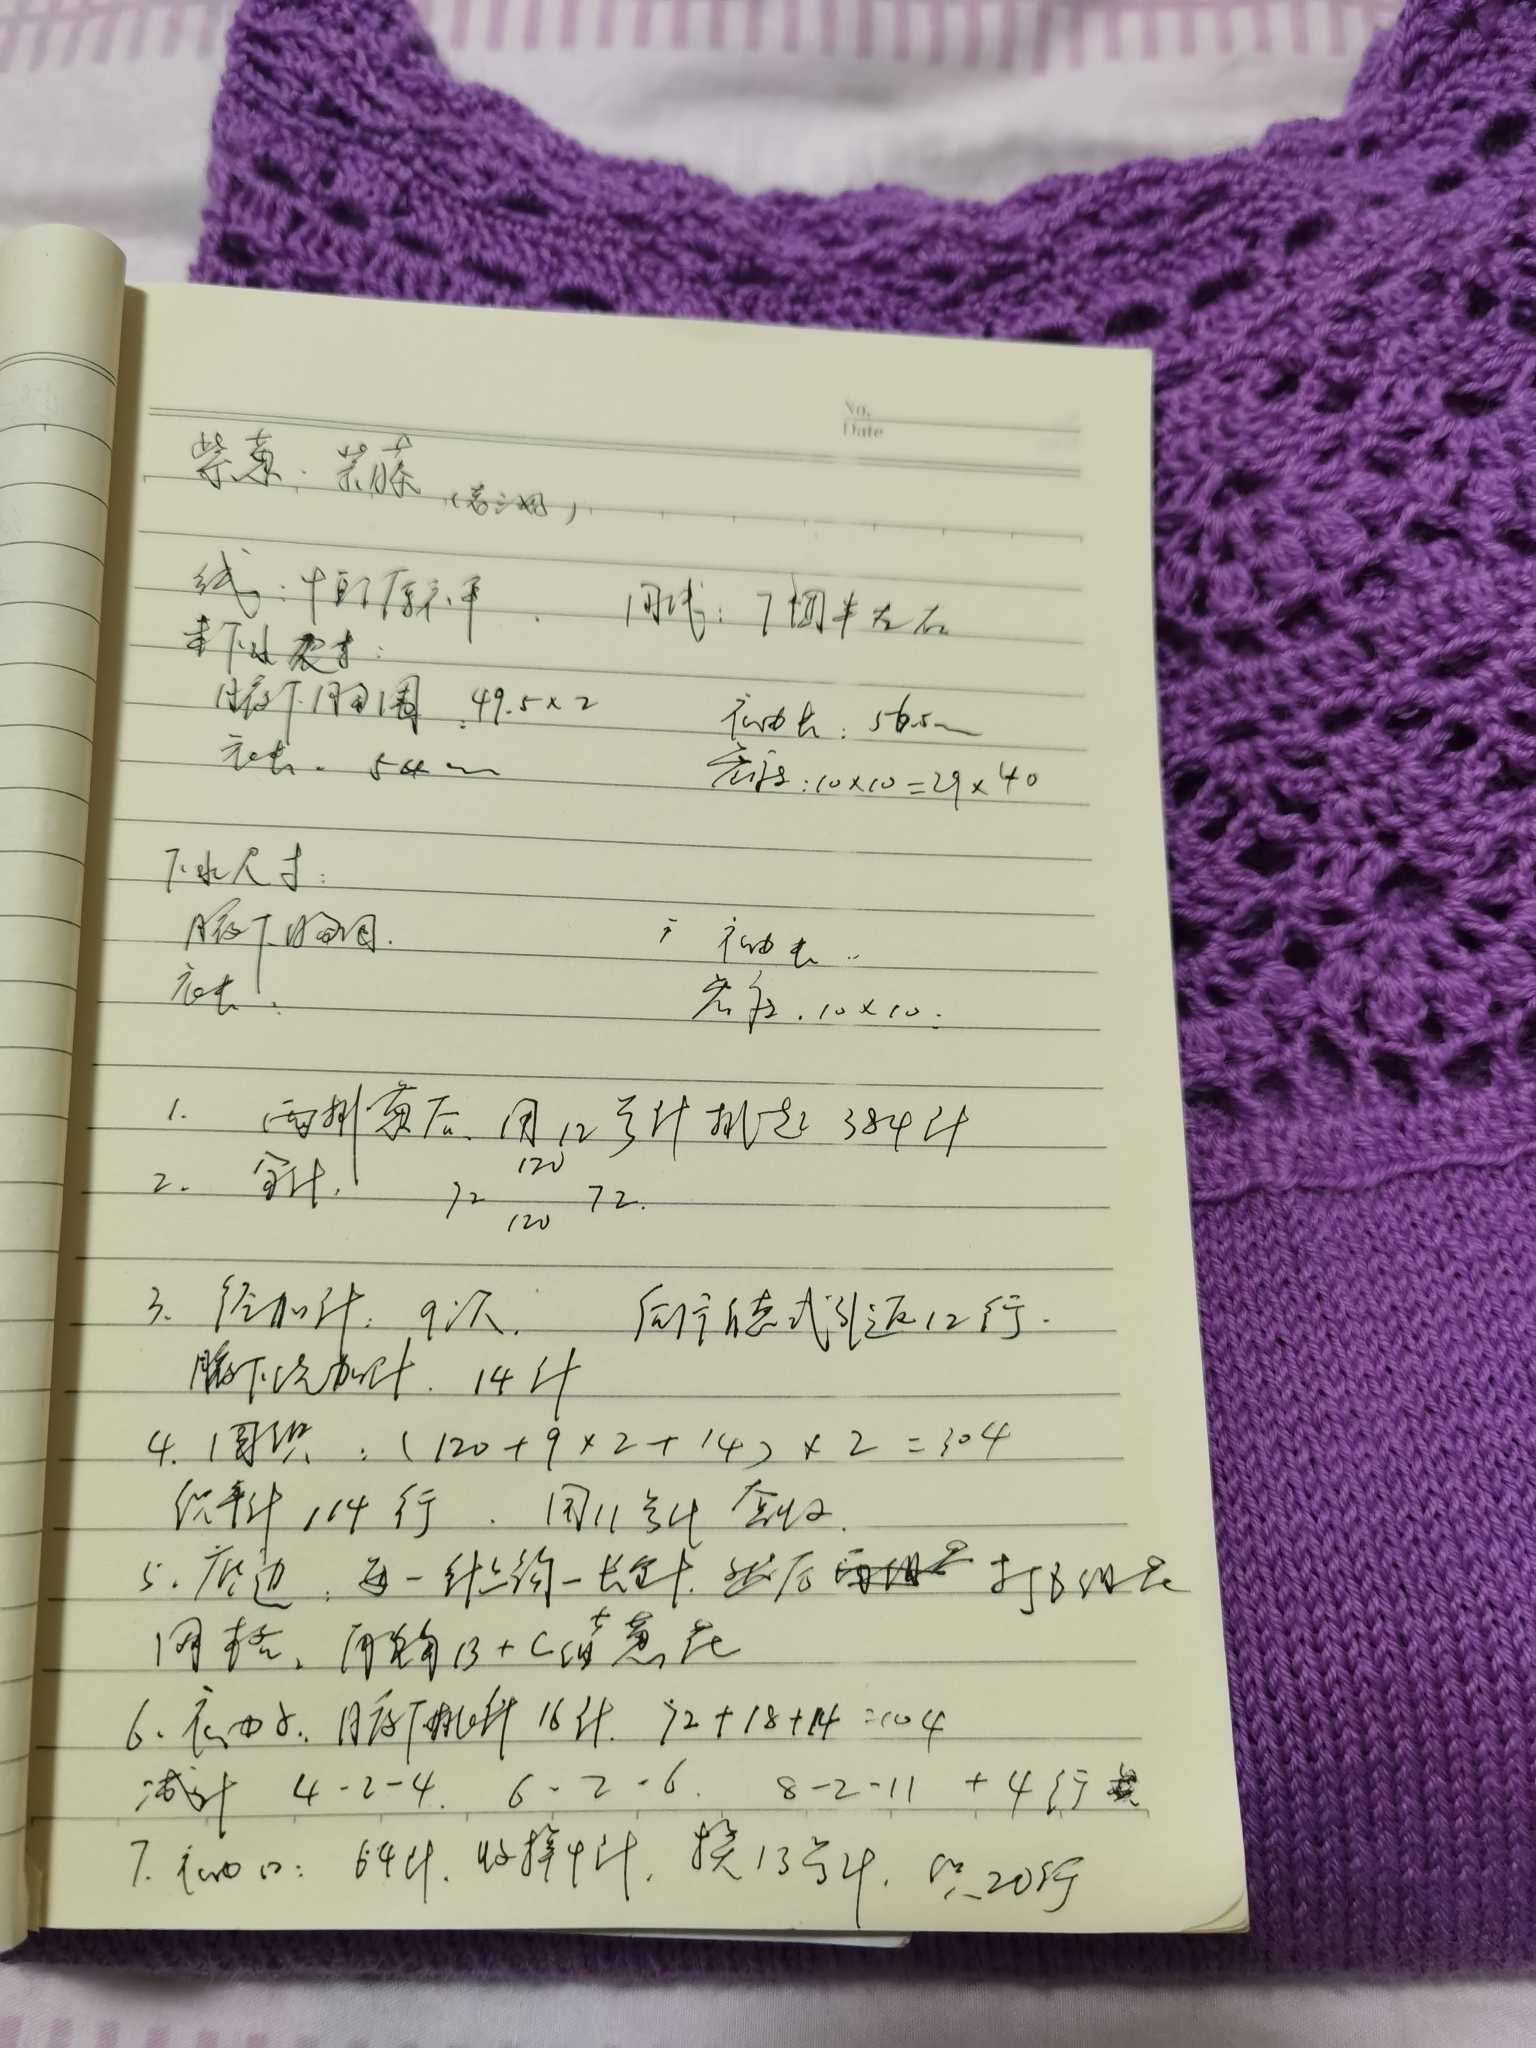 No.
Date
紫 紫藤
线: 用线: 7团半左右
未下水尺寸:
腋下胸围: 49.5×2 衣袖长: 56.5cm
衣长: 54cm 密度: 10×10=29×40
下水尺寸:
腋下胸围. 衣袖长:
衣长: 密度: 10×10:
1. 两排 后、用12号针挑起384针
2. 分针. 72 120 72.
120
3. 径加针: 9次. 后片 式引返12行.
腋下 加针. 14针
4. 圈织: (120+9×2+14)×2=304
织平针114行. 用11号针套收.
5. 底边: 每一针上钩一长针. 然后 打B组花
网格、 B+C组 花
6. 衣袖: 腋下挑 16针. 72+18+14=104
减针 4-2-4. 6-2-6. 8-2-11 +4行
7. 袖口: 64针. 收掉4针. 换13号针. 织20行